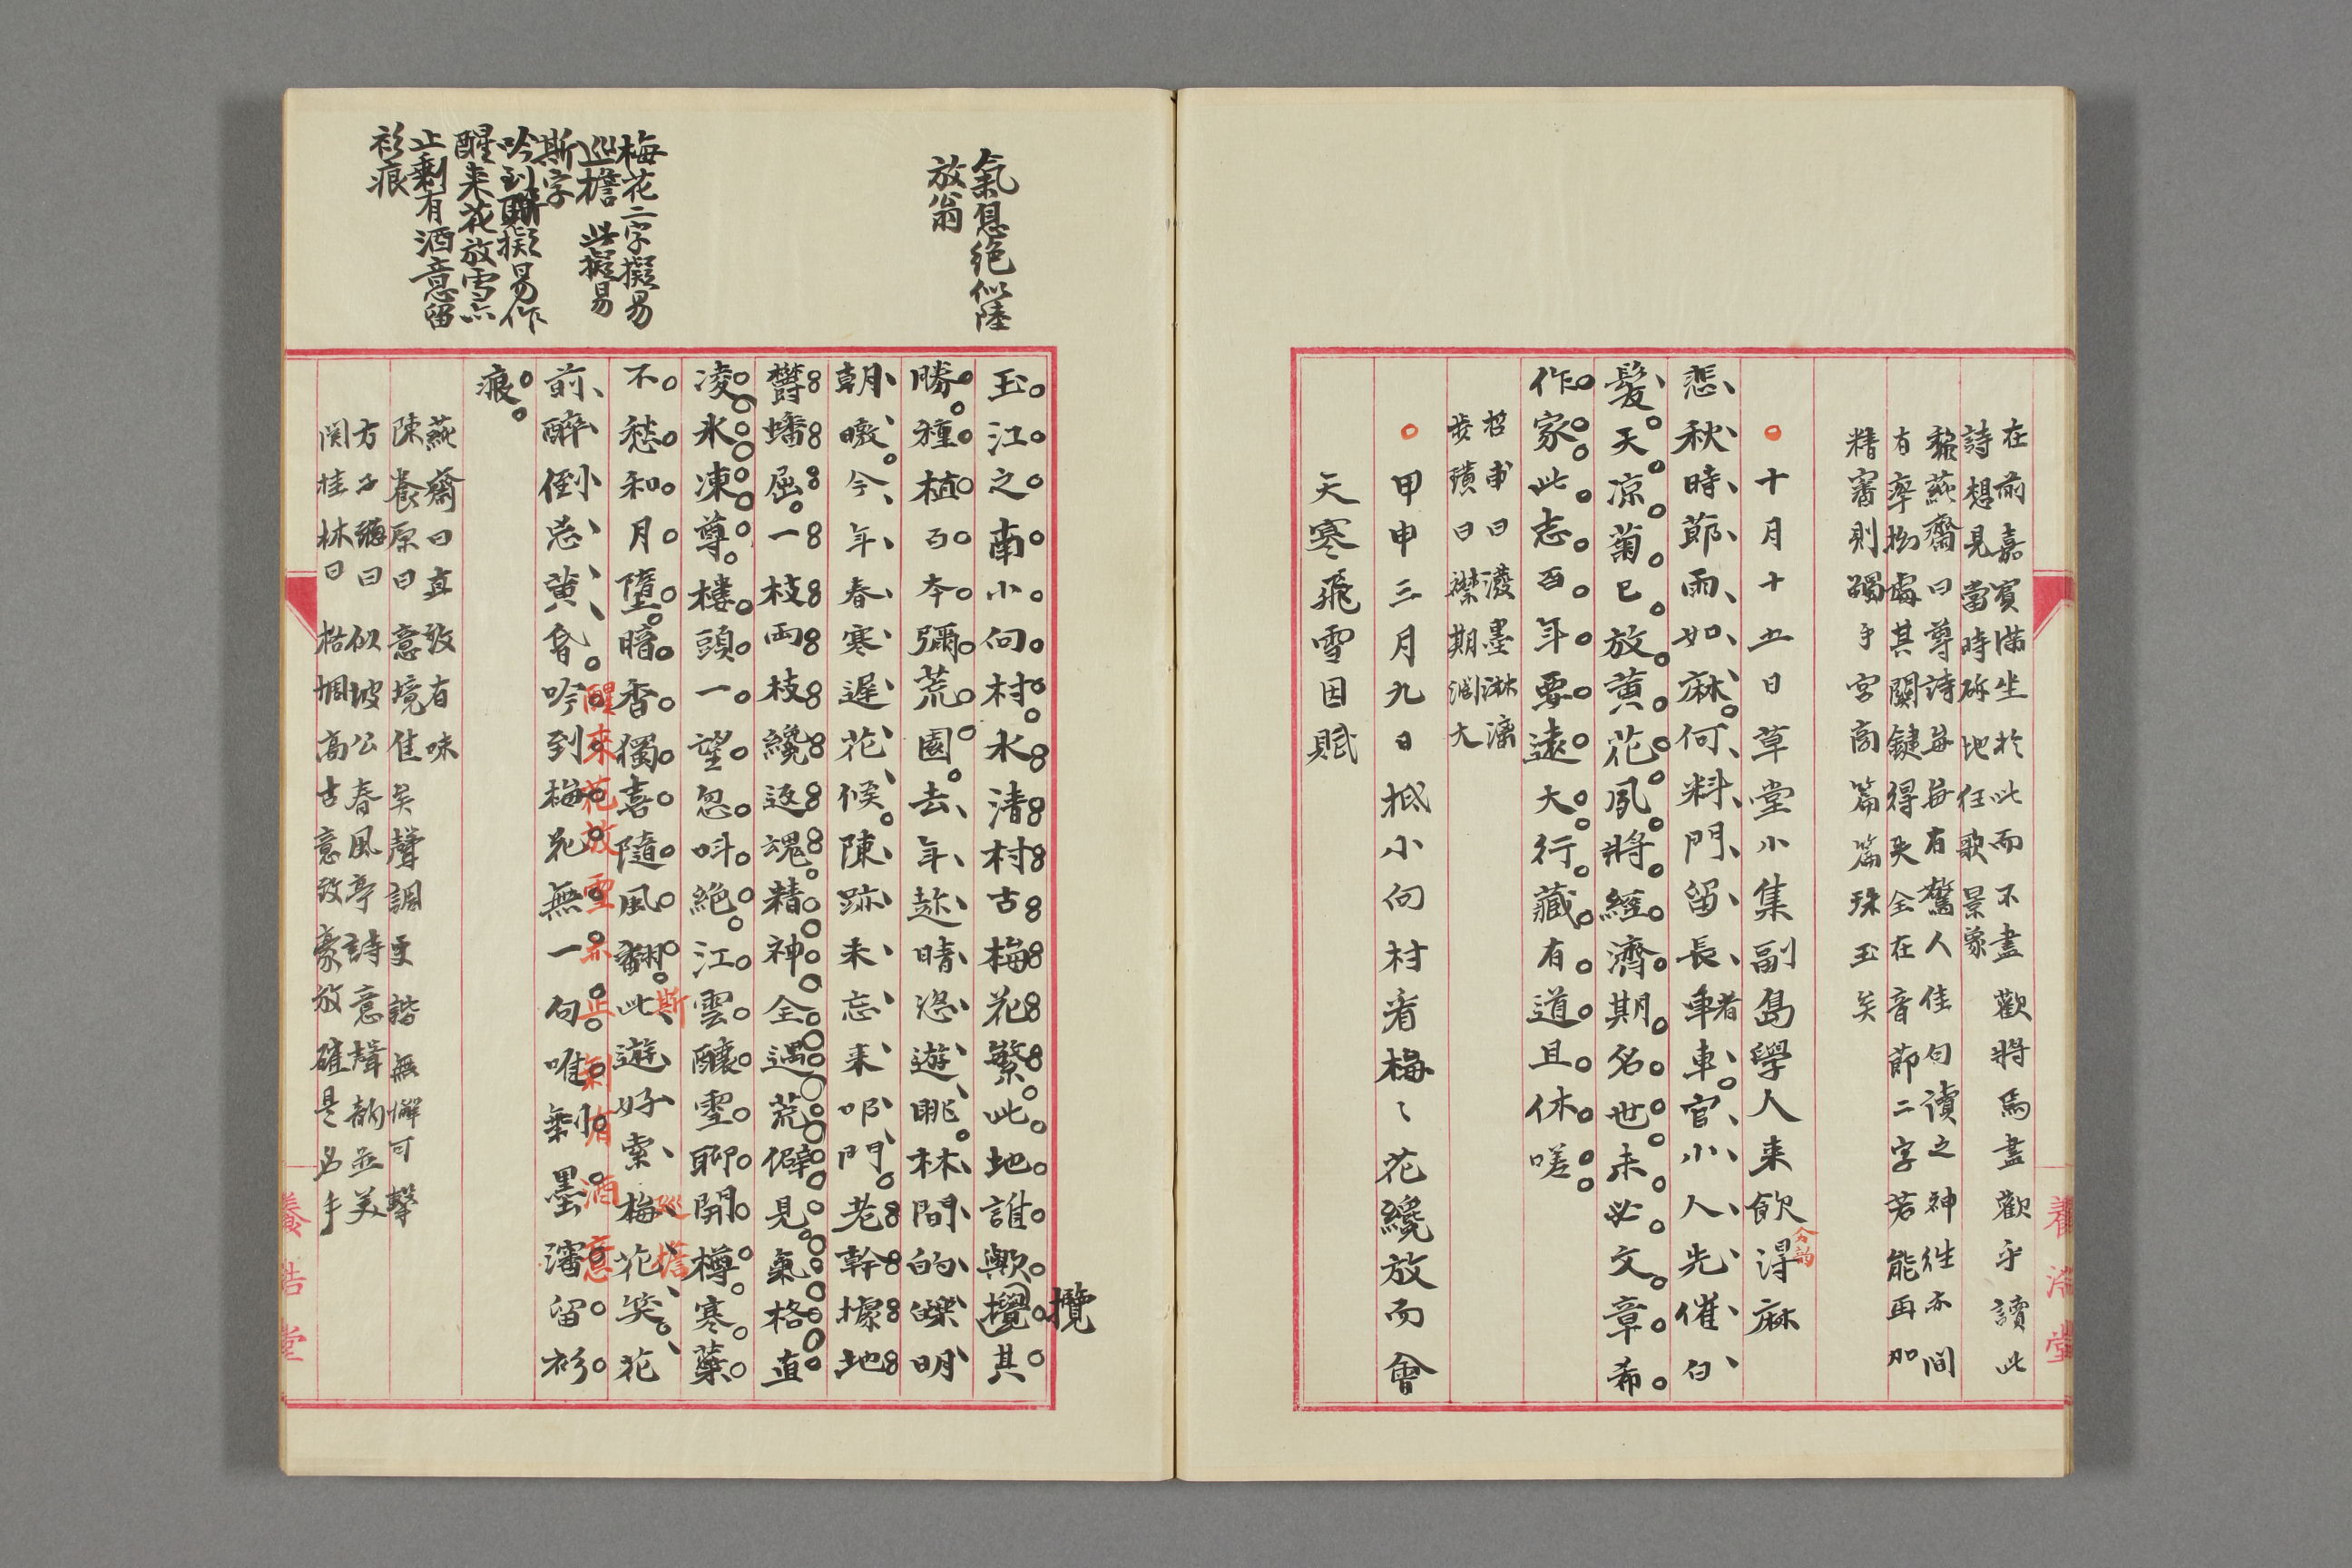 在前嘉賓滿坐於此而不盡歡將為盡歡乎讀此
詩想見當時砾地狂歌景象
黎蒓齋曰尊詩每每有驚人佳句讀之神往亦間
有率拗處其關鍵得失全在音節二字若能再加
精審則躅乎宮商篇篇珠玉矣
十月十五日草堂小集副島學人来飲得麻
分韵
悲秋時節雨如麻何料門留長者車官小人先催白
髮天凉菊已放黃花夙將經濟期名世未必文章希
作家此志百年要遠大行藏有道且休嗟
招甫曰潑墨淋漓
步蹟曰襟期闊大
甲申三月九日抵小向村看梅〻花纔放而會
天寒飛雪因賦
氣息絕似陸
放翁
玉江之南小向村水清村古梅花繁此地誰歟攬其
攬
勝種植百本彌荒園去年趂晴恣遊眺林間的皪明
朝暾今年春寒遲花候陳跡未忘来叩門老幹據地
欝蟠屈一枝兩枝纔返魂精神全遇荒僻見氣格直
凌氷凍尊樓頭一望忽叫絕江雲釀雪聊開樽寒蘂
不愁和月墮暗香獨喜隨風翻此遊好索梅花笑花
斯 巡檐
前醉倒忘黃昏吟到梅花無一句唯剩墨瀋留衫
醒来花放雪亦止剩有酒意
痕
梅花二字擬易
巡檐 此擬易
斯字
吟到聯擬易作
醒来花放雪亦
止剩有酒意留
衫痕
蒓齋曰直致有味
陳養原曰意境佳矣聲調更諧無懈可擊
方子聽曰似坡公春風亭詩意聲韵並美
関桂林曰格調高古意致豪放確是名手
養浩堂
養浩堂